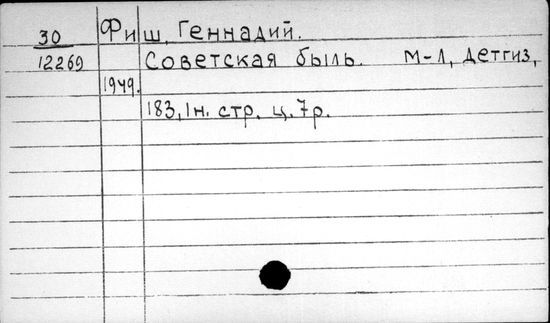 30 Фиш, Геннадий.
12269 Советская быль. М-Л, Детгиз,
1949.
183, 1н. стр. ц. 7р.